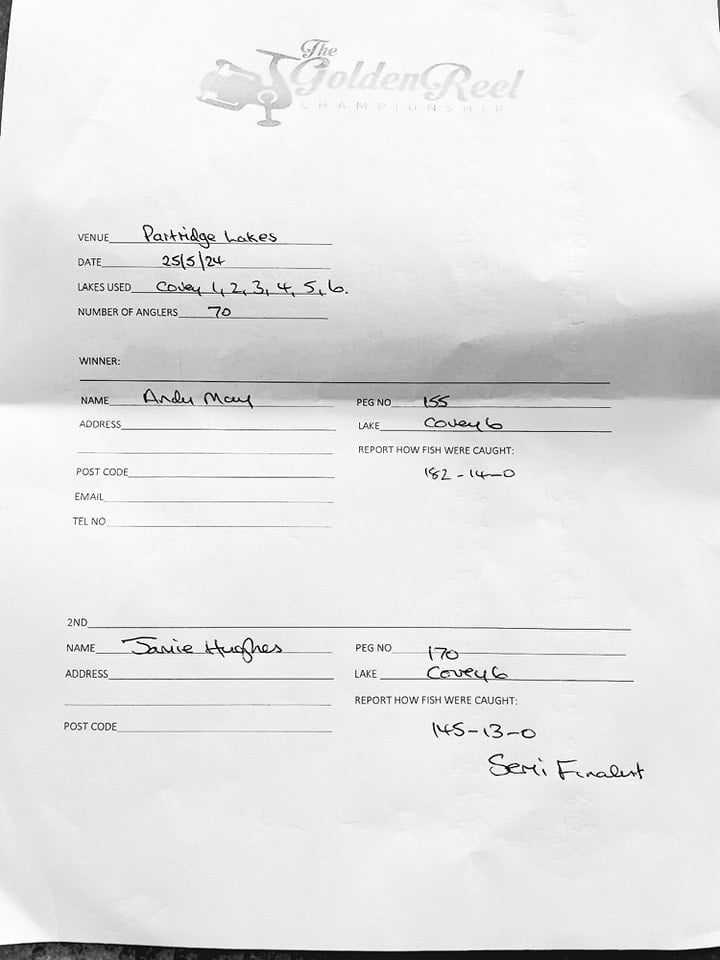 The
Golden Reel
CHAMPIONSHIP
VENUE Partridge Lakes
DATE 25/5/24
LAKES USED Covey 1, 2, 3, 4, 5, 6.
NUMBER OF ANGLERS 70
WINNER:
NAME Andy May PEG NO 155
ADDRESS LAKE Covey 6
REPORT HOW FISH WERE CAUGHT:
POST CODE 182-14-0
EMAIL
TEL NO
2ND
NAME Jamie Hughes PEG NO 170
ADDRESS LAKE Covey 6
REPORT HOW FISH WERE CAUGHT:
POST CODE 145-13-0
Semi Finalist